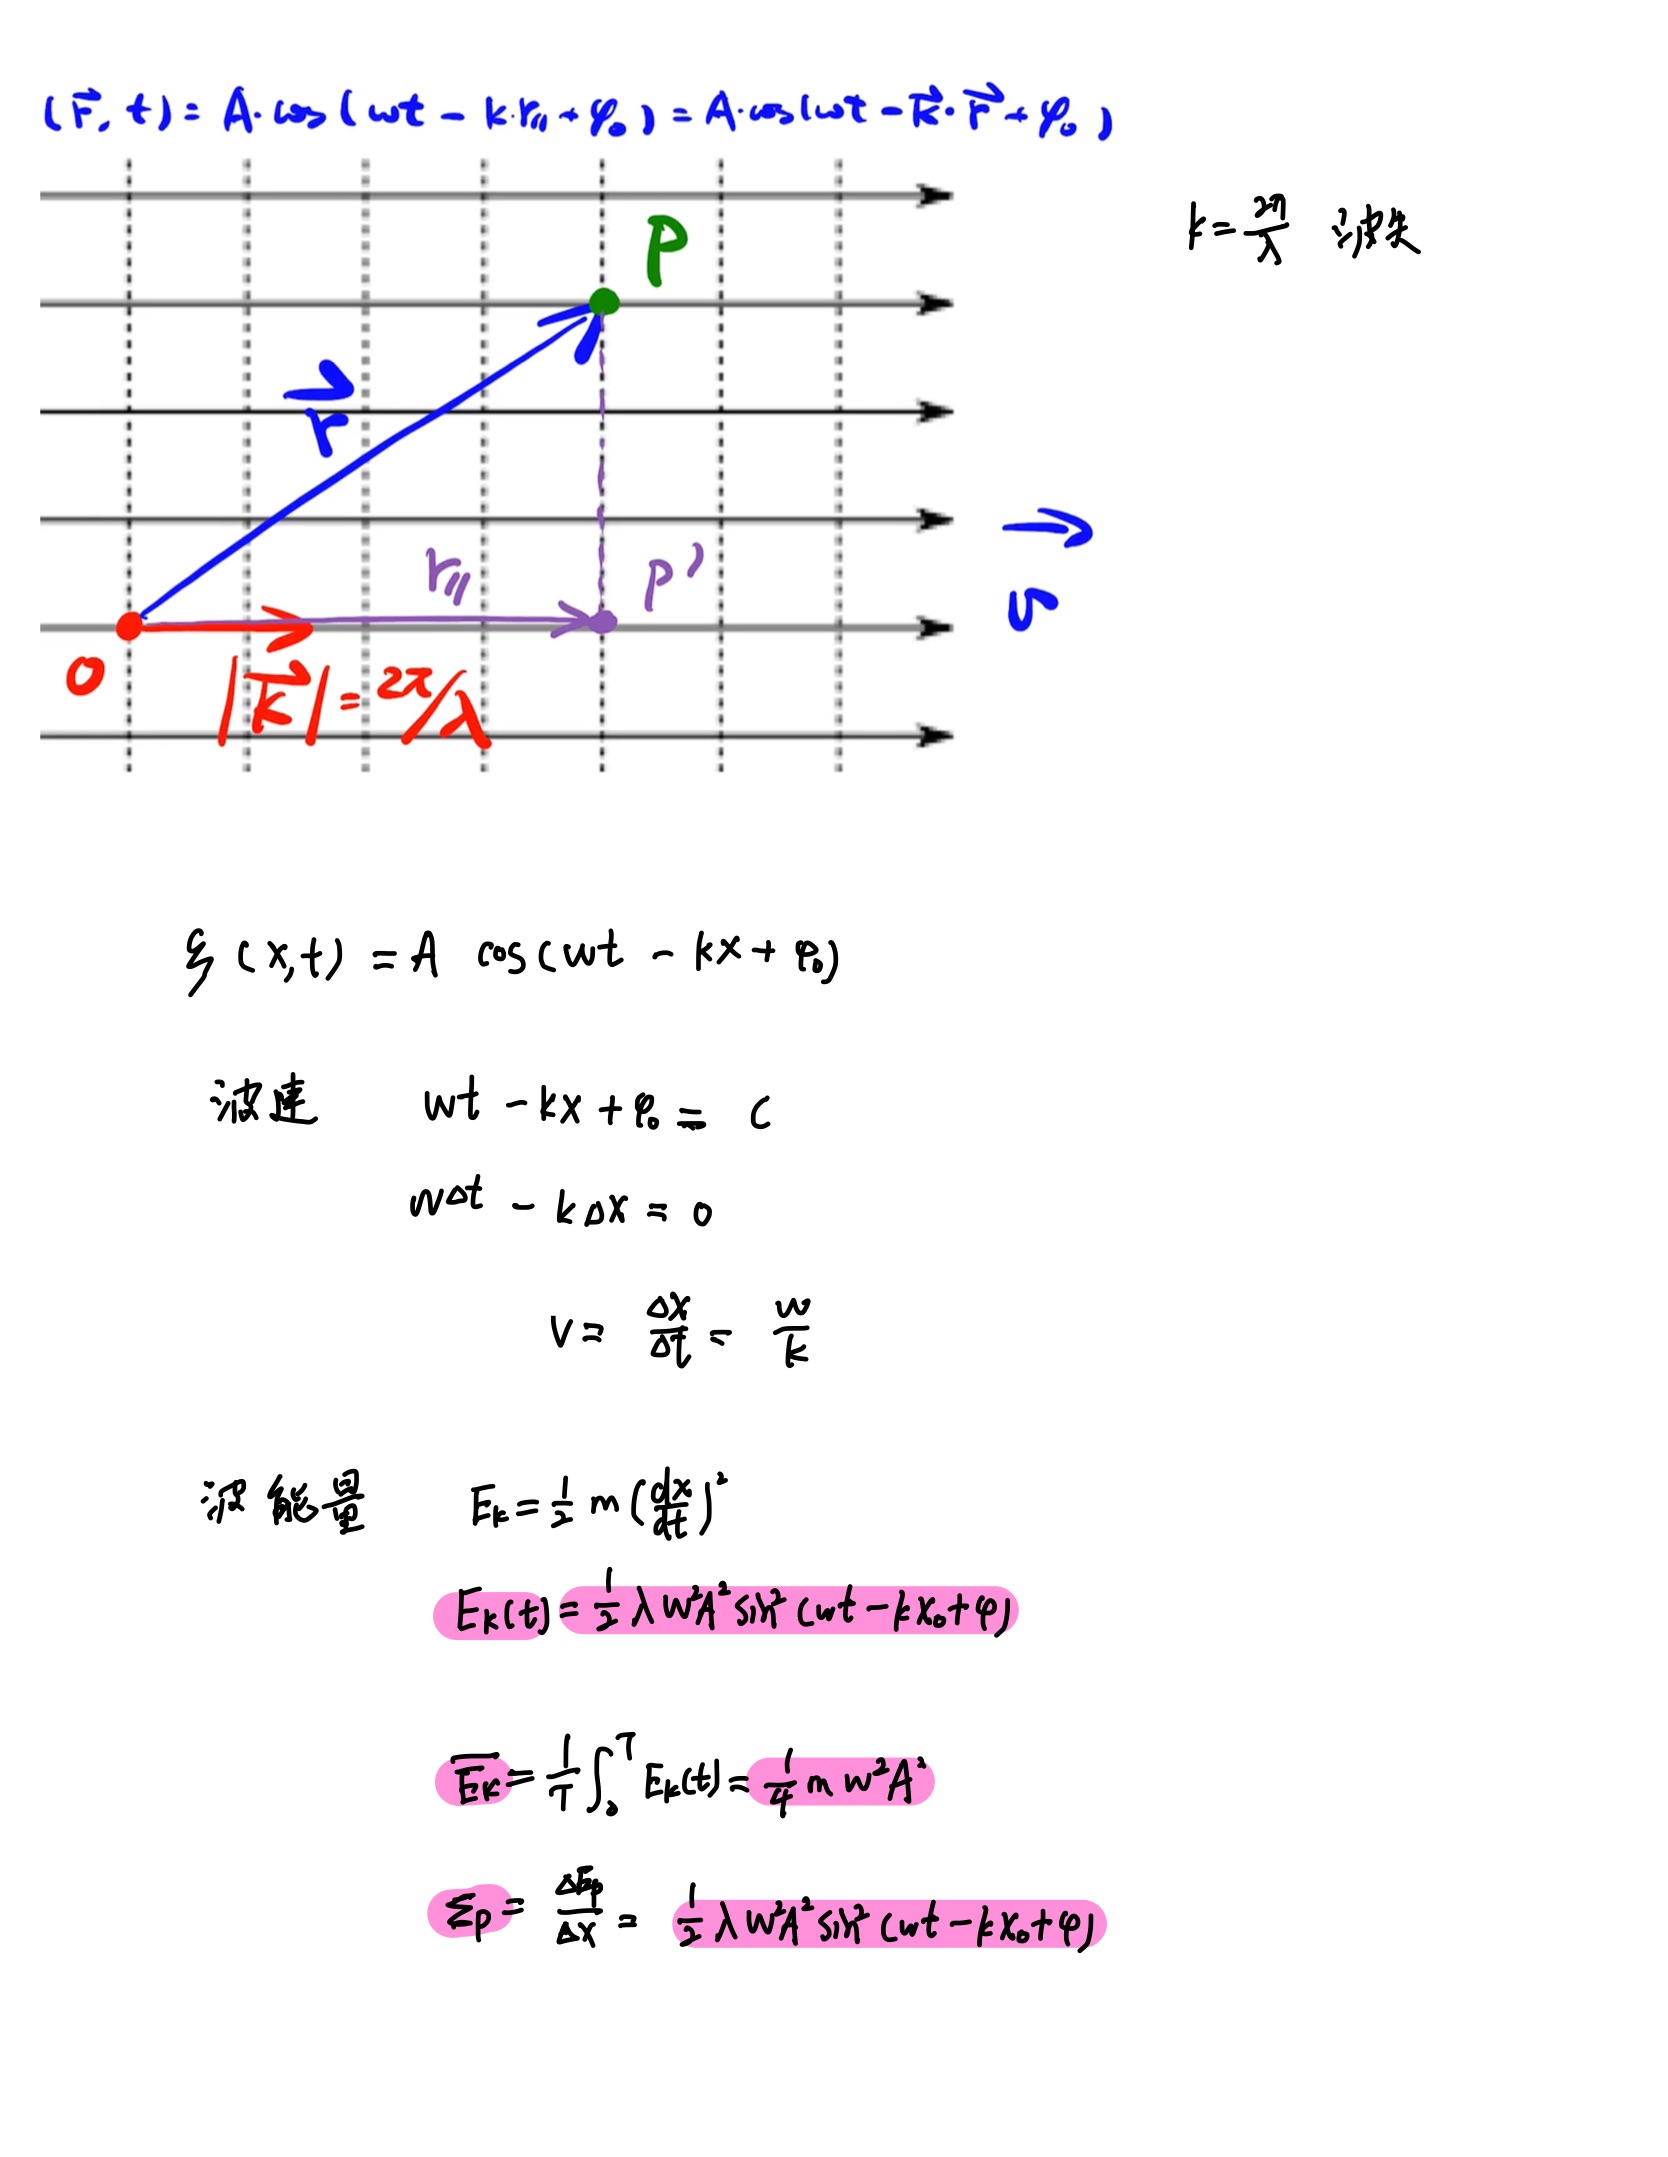 (r⃗, t) = A·cos(ωt − k·r∥ + φ₀) = A·cos(ωt − k⃗·r⃗ + φ₀)
k = 2π/λ 波矢
P
r⃗
r∥
P'
v⃗
O
|k⃗| = 2π/λ
ξ(x,t) = A cos(ωt − kx + φ₀)
波速 ωt − kx + φ₀ = C
ωΔt − kΔx = 0
V = Δx/Δt = ω/k
波能量 Eₖ = 1/2 m (dx/dt)²
Eₖ(t) = 1/2 λω²A² sin²(ωt − kx₀ + φ)
E̅ₖ = 1/T ∫₀ᵀ Eₖ(t) = 1/4 m ω²A²
Σp = ΔEp/Δx = 1/2 λω²A² sin²(ωt − kx₀ + φ)